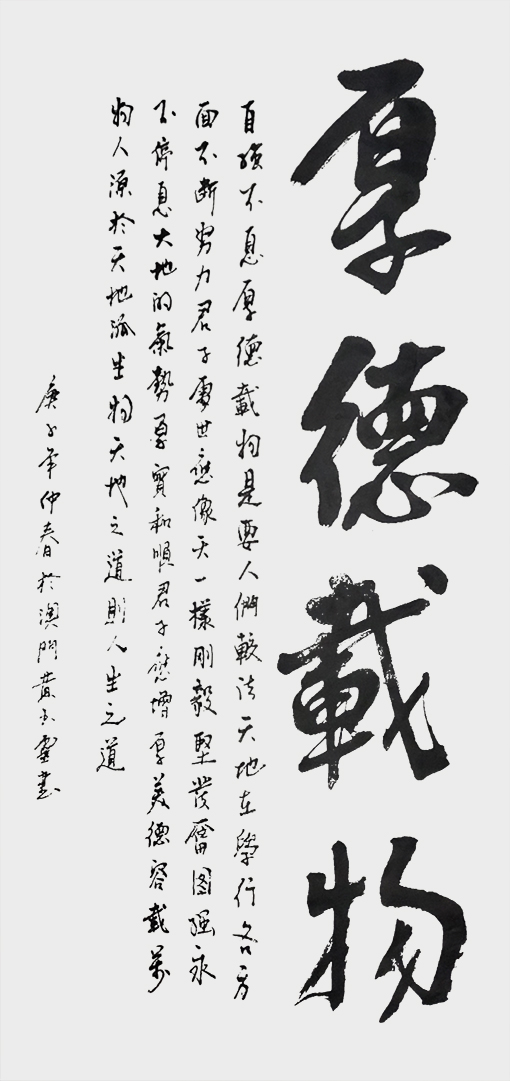 厚德載物
自強不息厚德載物是要人們效法天地在學行各方
面不斷努力君子處世應像天一樣剛毅堅 發奮圖強永
不停息大地的氣勢厚實和順君子應增厚美德容載萬
物人源於天地派生物天地之道則人生之道
庚子年仲春於澳門黃 書